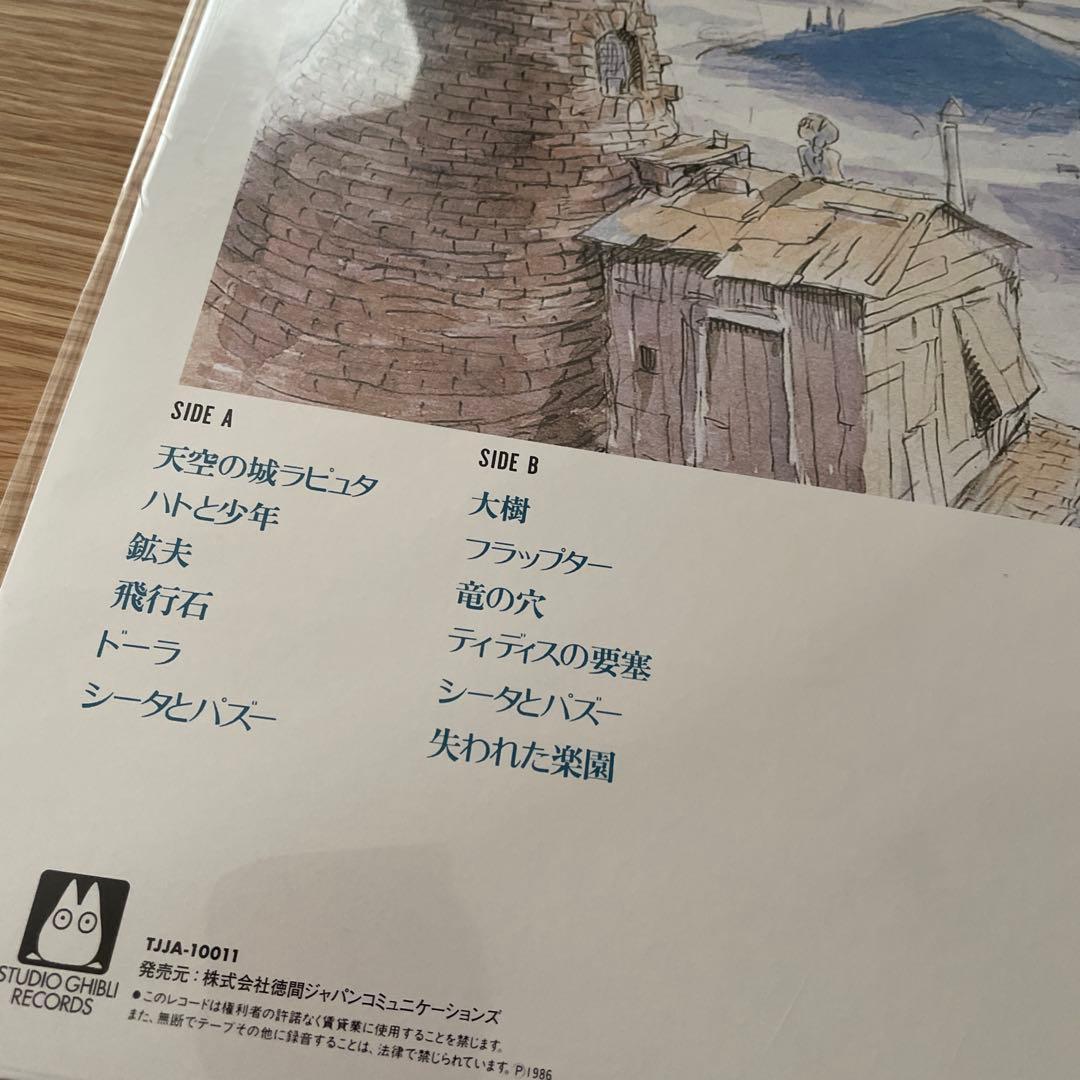 SIDE A
天空の城ラピュタ
ハトと少年
鉱夫
飛行石
ドーラ
シータとパズー
SIDE B
大樹
フラップター
竜の穴
ティディスの要塞
シータとパズー
失われた楽園
STUDIO GHIBLI
RECORDS
TJJA-10011
発売元:株式会社徳間ジャパンコミュニケーションズ
●このレコードは権利者の許諾なく賃貸業に使用することを禁じます。
また、無断でテープその他に録音することは、法律で禁じられています。Ⓟ1986